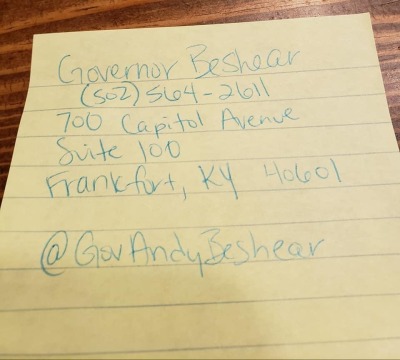 Governor Beshear
(502) 564-2611
700 Capitol Avenue
Suite 100
Frankfort, KY 40601
@GovAndyBeshear